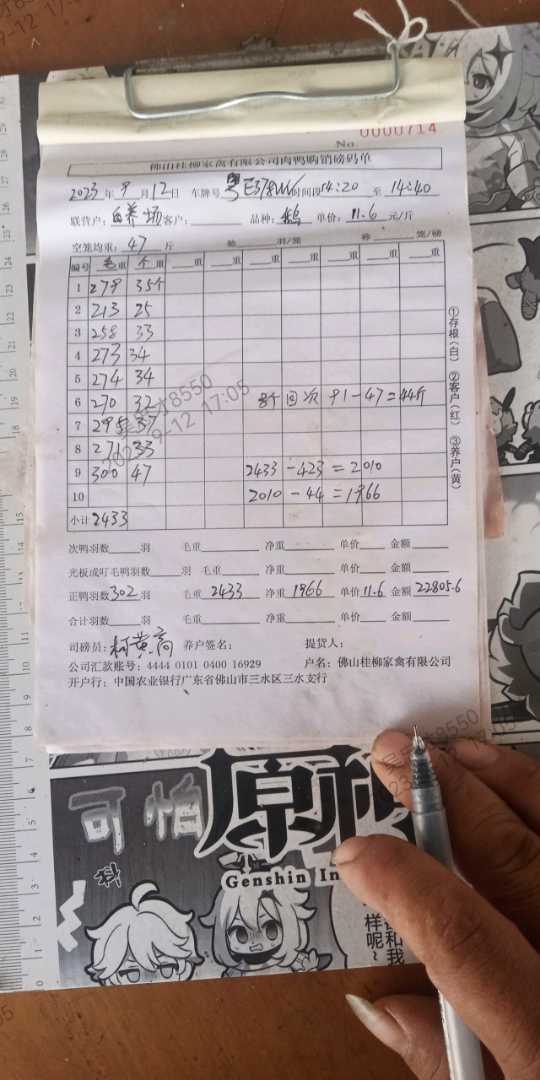 0000714
No.
佛山桂柳家禽有限公司肉鸭购销磅码单
2023年9月12日 车牌号 时间段14:20 至 14:40
联营户: 自养场 客户: 品种: 鹅 单价: 11.6 元/斤
空笼均重: 47 斤 羽/笼 笼/磅
编号 毛重 个重 重 重 重 重 重 重 重
1 279 35个
2 213 25
3 258 33
4 273 34
5 274 34
6 270 32 8个 回次 91-47=44斤
7 295 37
8 271 33
9 300 47 2433-423=2010
10 2010-44=1966
小计 2433
①存根(白) ②客户(红) ③养户(黄)
次鸭羽数 羽 毛重 净重 单价 金额
光板或叮毛鸭羽数 羽 毛重 净重 单价 金额
正鸭羽数302羽 毛重 2433 净重 1966 单价 11.6 金额 22805.6
合计羽数 羽 毛重 净重 单价 金额
司磅员: 养户签名: 提货人:
公司汇款账号: 4444 0101 0400 16929 户名: 佛山桂柳家禽有限公司
开户行: 中国农业银行广东省佛山市三水区三水支行
可恶
原神
Genshin Im
样呢~
和我